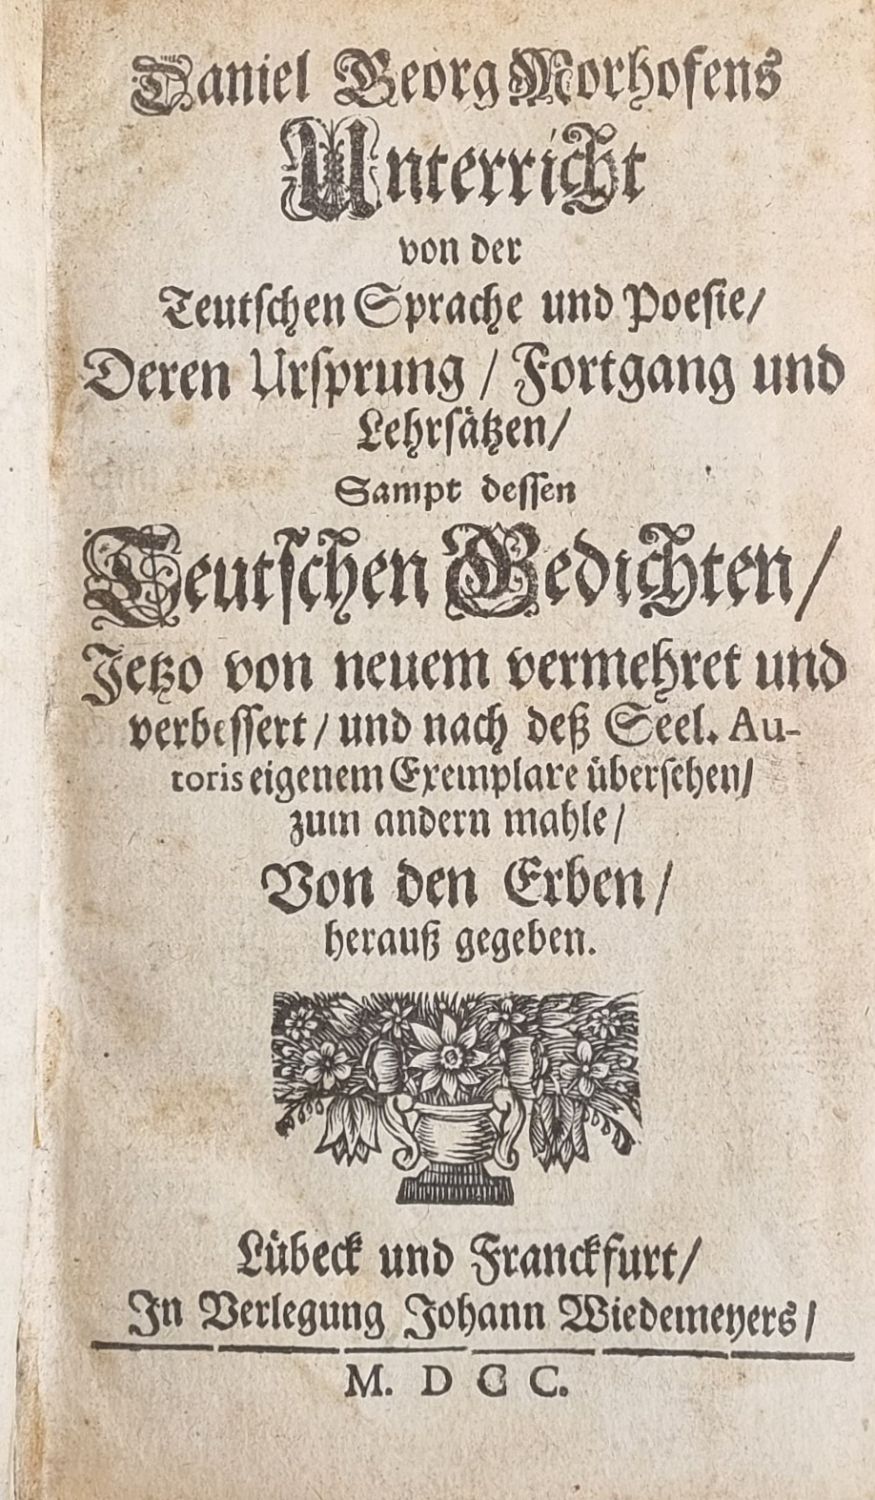 Daniel Georg Morhofens
Unterricht
von der
Teutschen Sprache und Poesie/
Deren Ursprung / Fortgang und
Lehrsätzen/
Sampt dessen
Teutschen Gedichten/
Jetzo von neuem vermehret und
verbessert/ und nach deß Seel. Au-
toris eigenem Exemplare übersehen/
zum andern mahle/
Von den Erben/
herauß gegeben.
Lübeck und Franckfurt/
In Verlegung Johann Wiedemeyers/
M. D C C.